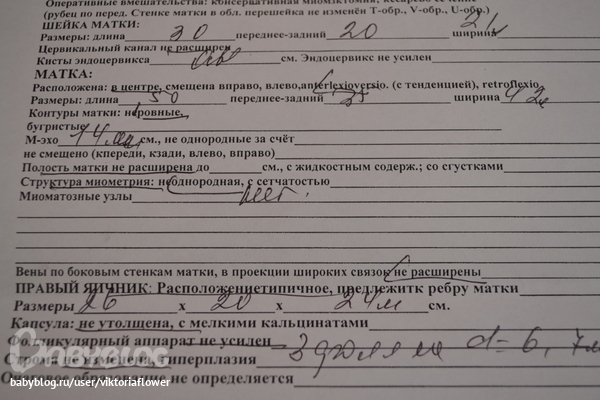 Оперативные вмешательства: консервативная миомэктомия, кесарево сечение
(рубец по пер. Стенке матки в обл. перешейка не изменён Т-обр., V-обр., U-обр.)
ШЕЙКА МАТКИ:
Размеры: длина 30 переднее-задний 20 ширина
Цервикальный канал не расширен
Кисты эндоцервикса см. Эндоцервикс не усилен
МАТКА:
Расположена: в центре, смещена вправо, влево, anteflexioversio. (с тенденцией), retroflexio
Размеры: длина 50 переднее-задний 35 ширина 42
Контуры матки: неровные,
бугристые
М-эхо 14 мм, см., не однородные за счёт
не смещено (кпереди, кзади, влево, вправо)
Полость матки не расширена до см., с жидкостным содерж.; со сгустками
Структура миометрия: неоднородная, с сетчатостью
Миоматозные узлы нет.
Вены по боковым стенкам матки, в проекции широких связок не расширены
ПРАВЫЙ ЯИЧНИК: Расположениетипичное, предлежитк ребру матки
Размеры 26 х 20 х 24 см.
Капсула: не утолщена, с мелкими кальцинатами
Фолликулярный аппарат не усилен d= 6, 7
Строма не изменена, гиперплазия
Очаговое образование не определяется
BABYBLOG
babyblog.ru/user/viktoriaflower